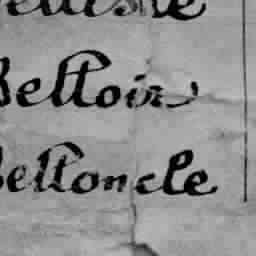 Belloir
Belloncle